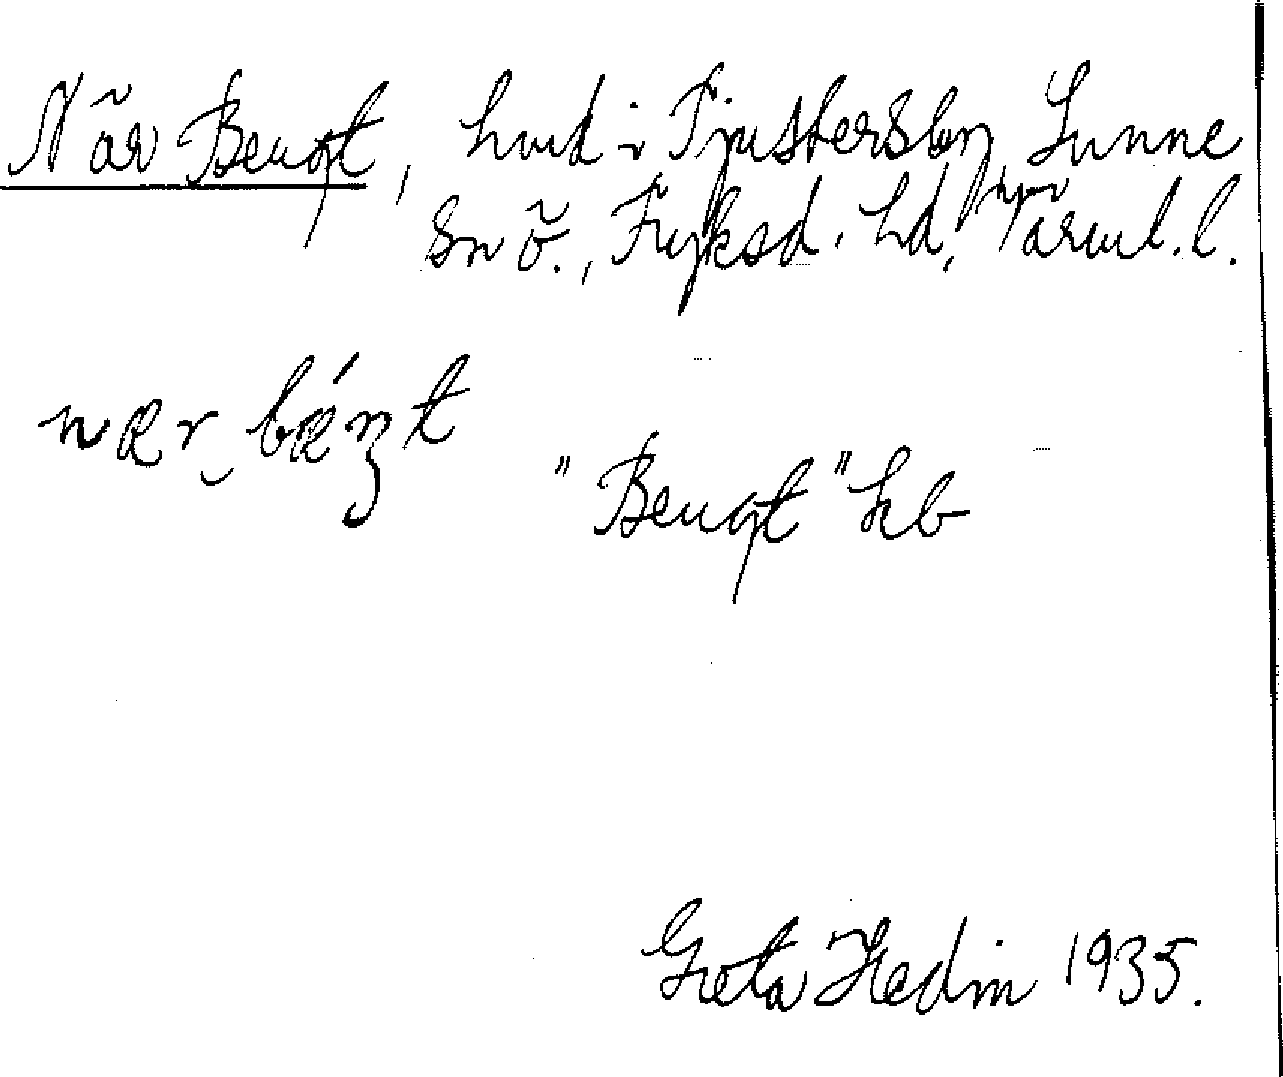 När Bengt, hmd i Tjustersby, Sunne
sn ö., Fryksd. hd, Värml. l.
nær bæŋt
"Bengt" hb
Greta Hedin 1935.